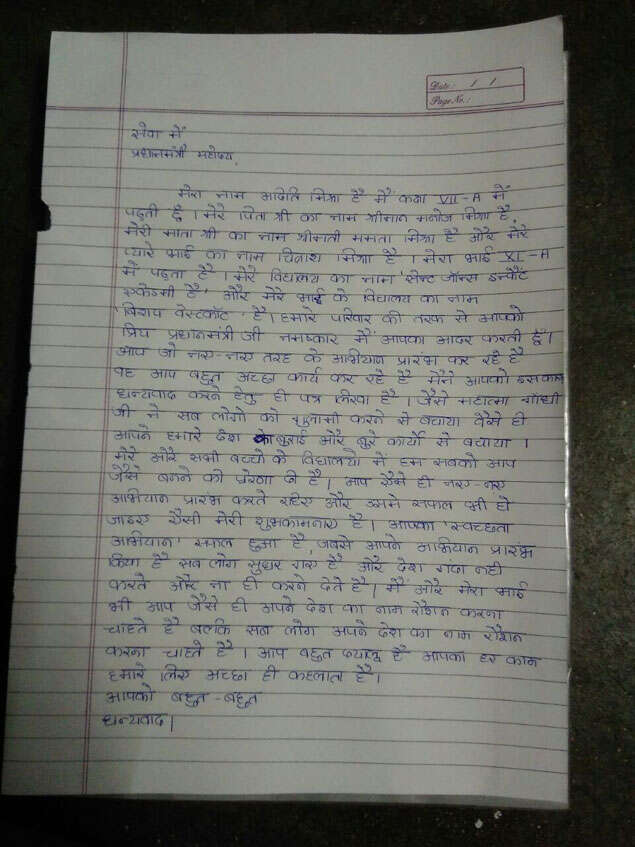 Date: / /
Page No.:
सेवा में
प्रधानमंत्री महोदय,
मेरा नाम अदिति मिश्रा है मैं कक्षा VII-A में
पढ़ती हूँ। मेरे पिता श्री का नाम श्रीमान मनोज मिश्रा है,
मेरी माता श्री का नाम श्रीमती ममता मिश्रा है और मेरे
प्यारे भाई का नाम मिश्रा है। मेरा भाई XI-A
में पढ़ता है। मेरे विद्यालय का नाम 'सेन्ट जॉन्स
एकेडमी है' और मेरे भाई के विद्यालय का नाम
'बिशप वेस्टकॉट' है। हमारे परिवार की तरफ से आपको
प्रिय प्रधानमंत्री जी नमस्कार मैं आपका आदर करती हूँ।
आप जो नए-नए तरह के अभियान प्रारंभ कर रहे है
वह आप बहुत अच्छा कार्य कर रहे है मैंने आपको इस कार्य
धन्यवाद करने हेतु ही पत्र लिखा है। जैसे महात्मा गाँधी
जी ने सब लोगो को गुलामी करने से बचाया वैसे ही
आपने हमारे देश को बुराई और बुरे कार्यो से बचाया।
मेरे और सभी बच्चो के विद्यालयो में हम सबको आप
जैसे बनने की प्रेरणा दी है। आप ऐसे ही नए-नए
अभियान प्रारंभ करते रहिए और उसमे सफल भी हो
जाइए ऐसी मेरी शुभकामनाए है। आपका 'स्वच्छता
अभियान' सफल हुआ है, जबसे आपने अभियान प्रारंभ
किया है सब लोग सुधर गए है और देश गंदा नही
करते और ना ही करने देते है। मैं और मेरा भाई
भी आप जैसे ही अपने देश का नाम रौशन करना
चाहते है बल्कि सब लोग अपने देश का नाम रौशन
करना चाहते है। आप बहुत दयालू है आपका हर काम
हमारे लिए अच्छा ही कहलाता है।
आपको बहुत-बहुत
धन्यवाद।